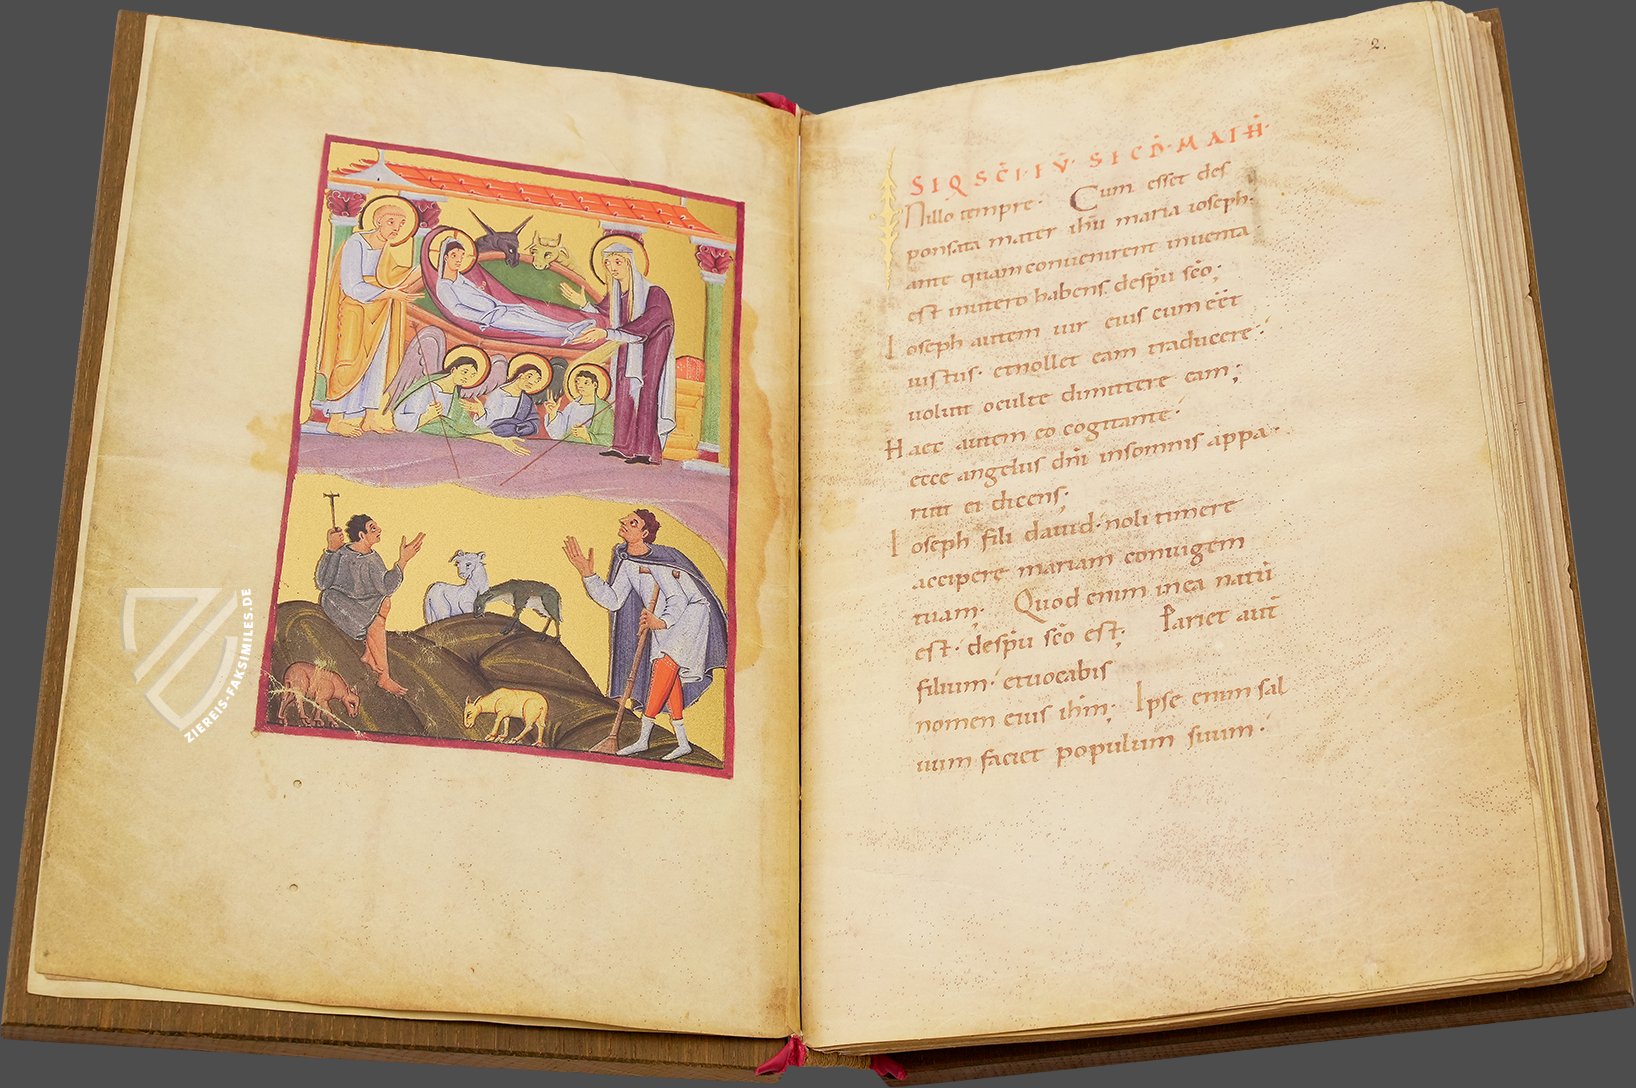 ZIEREIS-FAKSIMILES.DE
2.
SEQ SC̄I EV̄ SECD̄ MATH̄
In illo tempre· Cum esset des
ponsata mater ih̄u maria ioseph·
ante quam conuenirent inuenta
est inutero habens despū sc̄o;
Ioseph autem uir eius cum eēt
iustus· etnollet eam traducere·
uoluit oculte dimittere eam;
Haec autem eo cogitante·
ecce angelus dn̄i insomnis appa·
ruit ei dicens;
Ioseph fili dauid· noli timere
accipere mariam coniugem
tuam· Quod enim inea natū
est· despū sc̄o est; Pariet aut̄
filium· etuocabis
nomen eius ih̄m; Ipse enim sal
uum faciet populum suum·